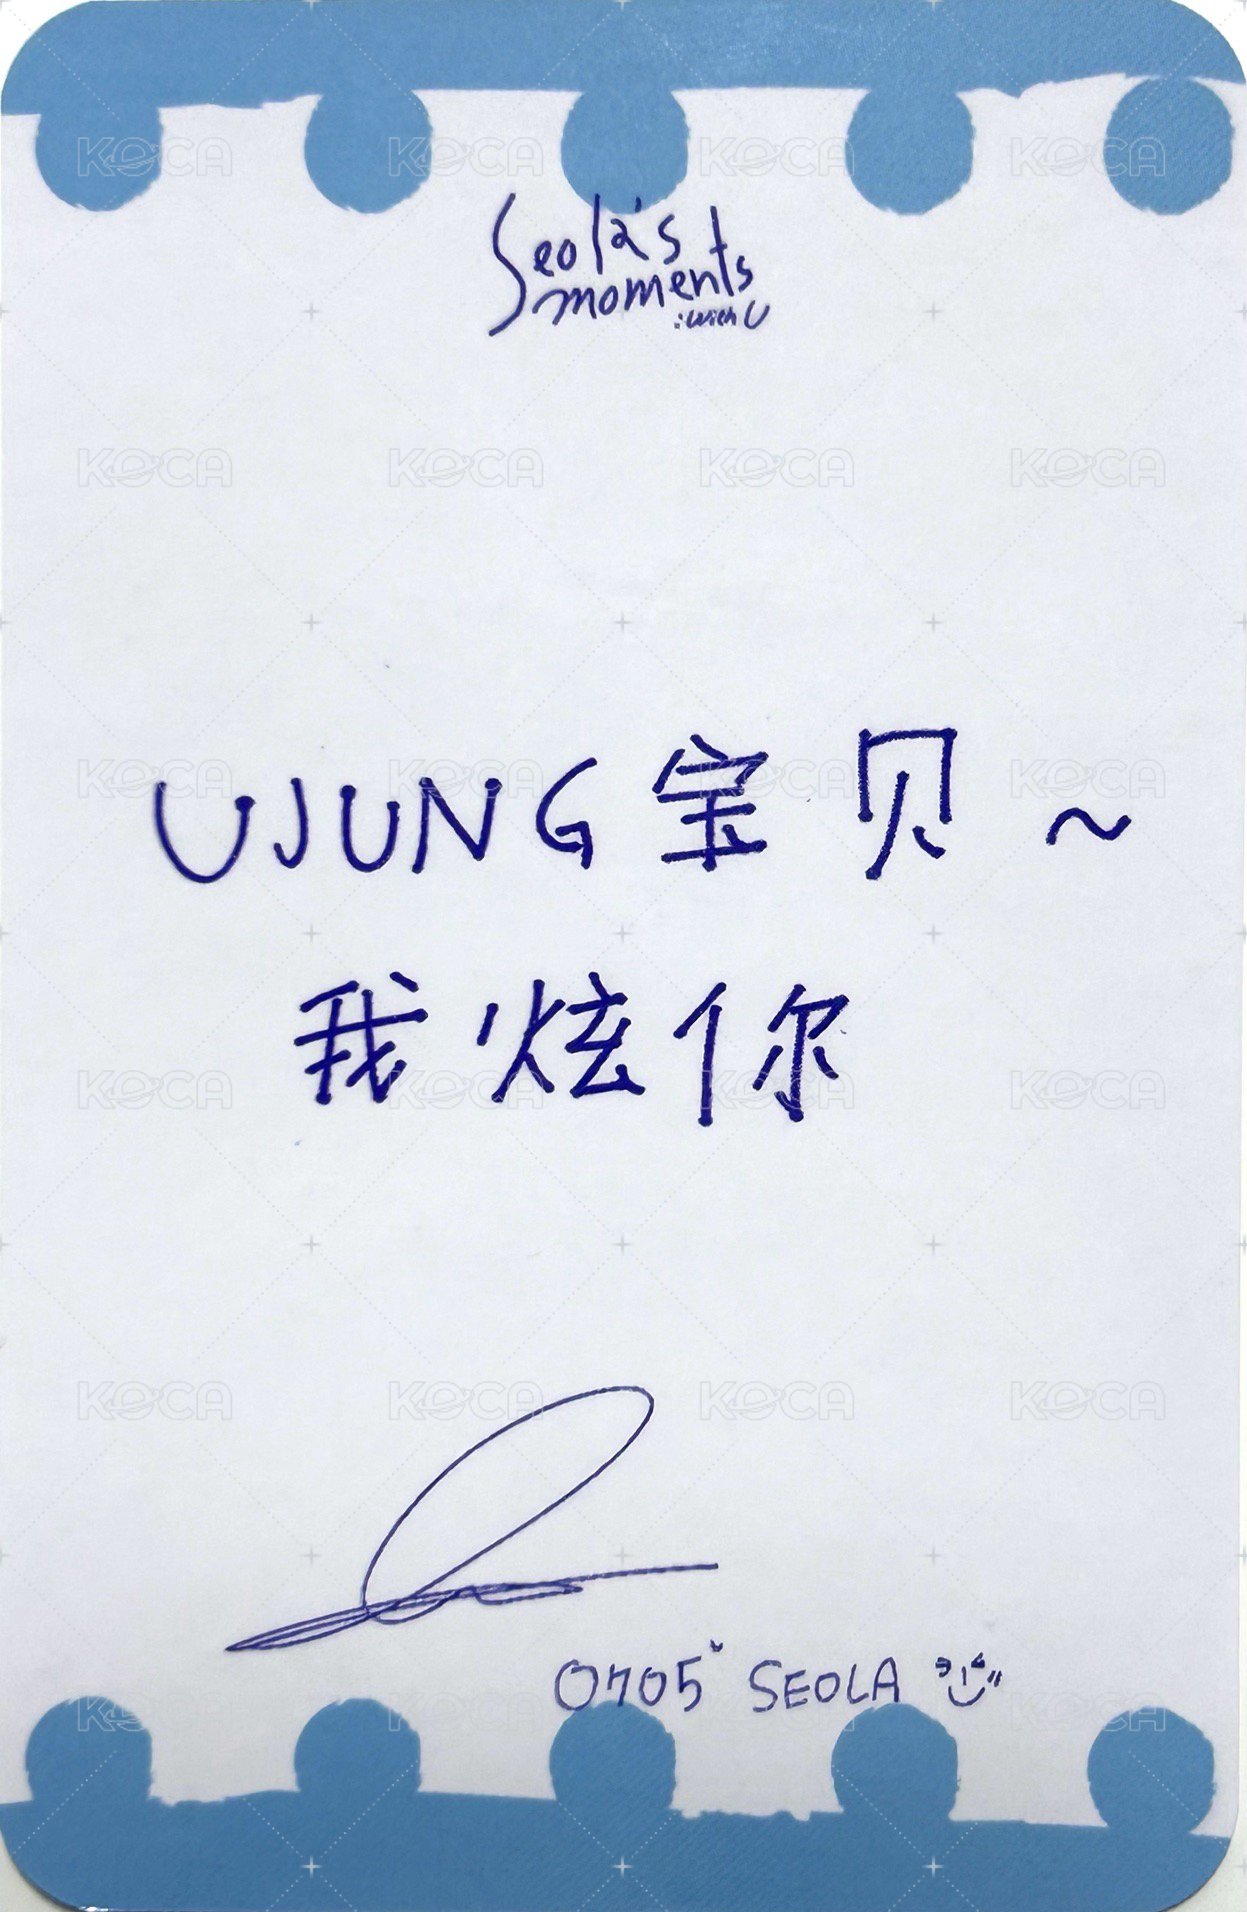 Seola's
moments
:with U
UJUNG宝贝~
我炫你
0705 SEOLA
KOCA